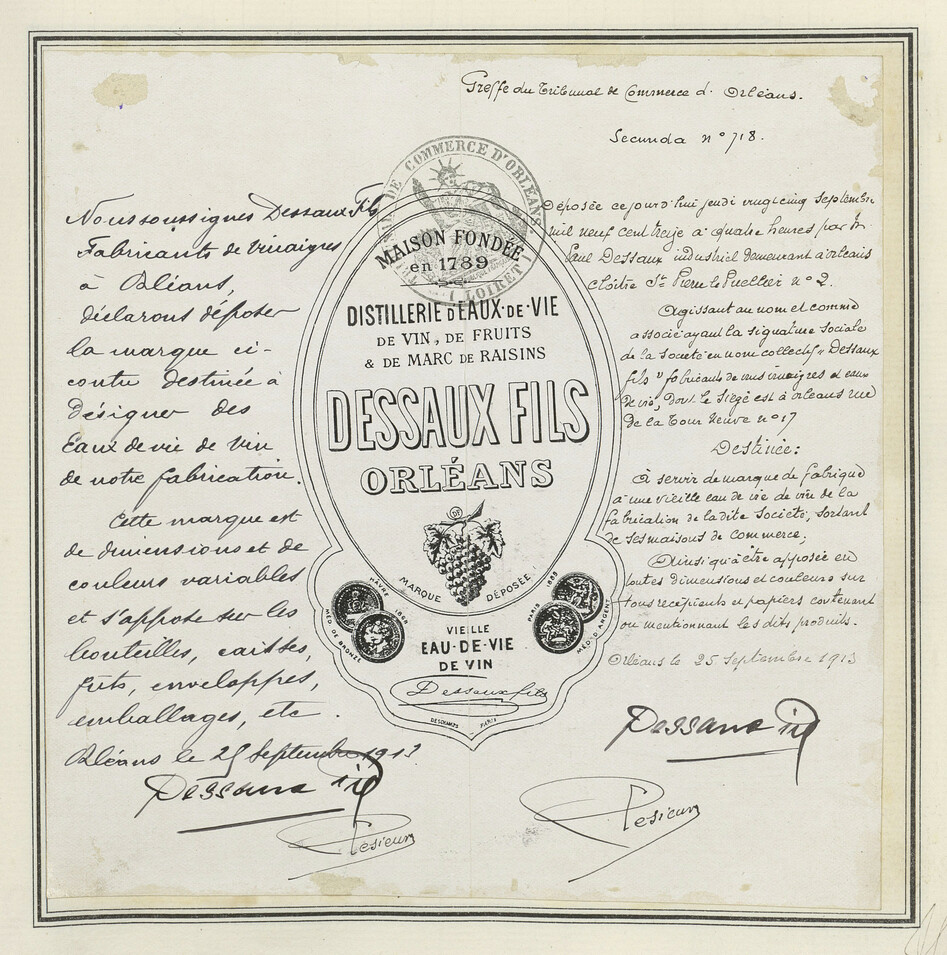 Greffe du Tribunal de Commerce d'Orléans.
Secunda n° 718.
Nous soussignés Dessaux Fils
Fabricants de Vinaigres
à Orléans,
déclarons déposer
la marque ci-
contre destinée à
désigner des
Eaux de vie de Vin
de notre fabrication.
Cette marque est
de dimensions et de
couleurs variables
et s'appose sur les
bouteilles, caisses,
fûts, enveloppes,
emballages, etc.
Orléans le 25 Septembre 1913
Dessaux fils
Pesieur
TRIBUNAL DE COMMERCE D'ORLÉANS
LOIRET
MAISON FONDÉE
en 1789
DISTILLERIE D'EAUX-DE-VIE
DE VIN, DE FRUITS
& DE MARC DE RAISINS
DESSAUX FILS
ORLÉANS
DF
MARQUE DÉPOSÉE
HAVRE 1868
MÉD. DE BRONZE
PARIS 1889
MÉD. D'ARGENT
VIEILLE
EAU-DE-VIE
DE VIN
Dessaux fils
DESCHAMPS PARIS
Déposée ce jourd'hui jeudi vingt cinq Septembre
mil neuf cent treize à quatre heures par M.
Paul Dessaux industriel demeurant à orléans
cloître St. Pierre le Puellier n° 2.
Agissant au nom et comme
associé ayant la signature sociale
de la Société en nom collectif "Dessaux
fils" fabricants de vinaigres et eaux
de vie, dont le siège est à orléans rue
de la Tour Neuve n° 17
Destinée:
À servir de marque de fabrique
à une vieille eau de vie de vin de la
fabrication de la dite Société, sortant
de ses maisons de commerce;
Ainsi qu'à être apposée en
toutes dimensions et couleurs sur
tous récipients et papiers contenant
ou mentionnant les dits produits.
Orléans le 25 Septembre 1913
Dessaux fils
Pesieur